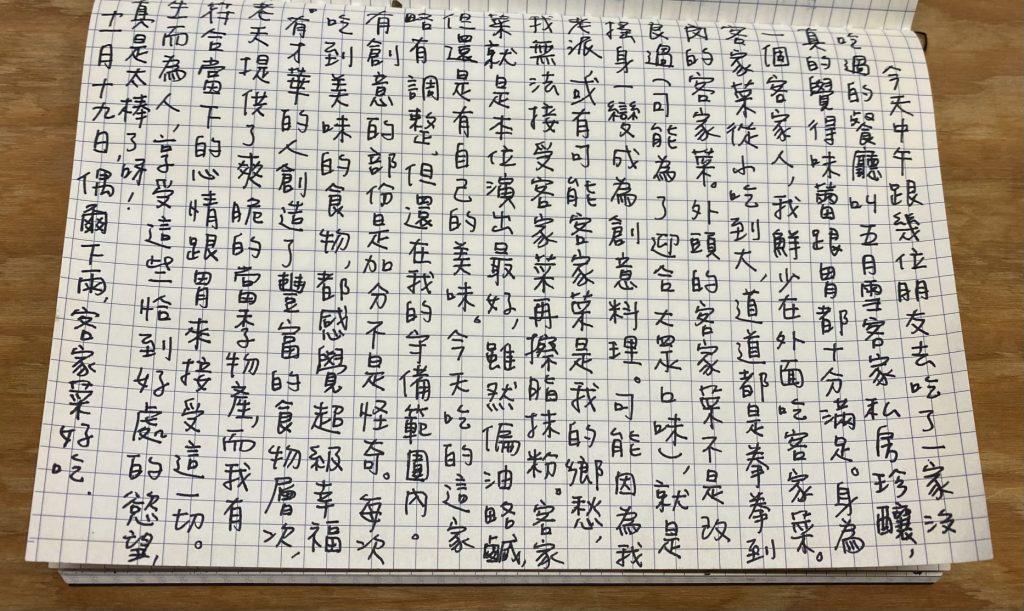 今天中午跟幾位朋友去吃了一家沒
吃過的餐廳叫五月雪客家私房珍釀,
真的覺得味蕾跟胃都十分滿足。身為
一個客家人,我鮮少在外面吃客家菜。
客家菜從小吃到大,道道都是拳拳到
肉的客家菜。外頭的客家菜不是改
良過(可能為了迎合大眾口味),就是
搖身一變成為創意料理。可能因為我
老派或有可能客家菜是我的鄉愁,
我無法接受客家菜再擦脂抹粉。客家
菜就是本位演出最好,雖然偏油略鹹,
但還是有自己的美味。今天吃的這家
略有調整,但還在我的守備範圍內。
有創意的部份是加分不是怪奇。每次
吃到美味的食物,都感覺超級幸福
有才華的人創造了豐富的食物層次,
老天提供了爽脆的當季物產,而我有
符合當下的心情跟胃來接受這一切。
生而為人,享受這些恰到好處的慾望,
真是太棒了呀!
十一月十九日,偶爾下雨,客家菜好吃.